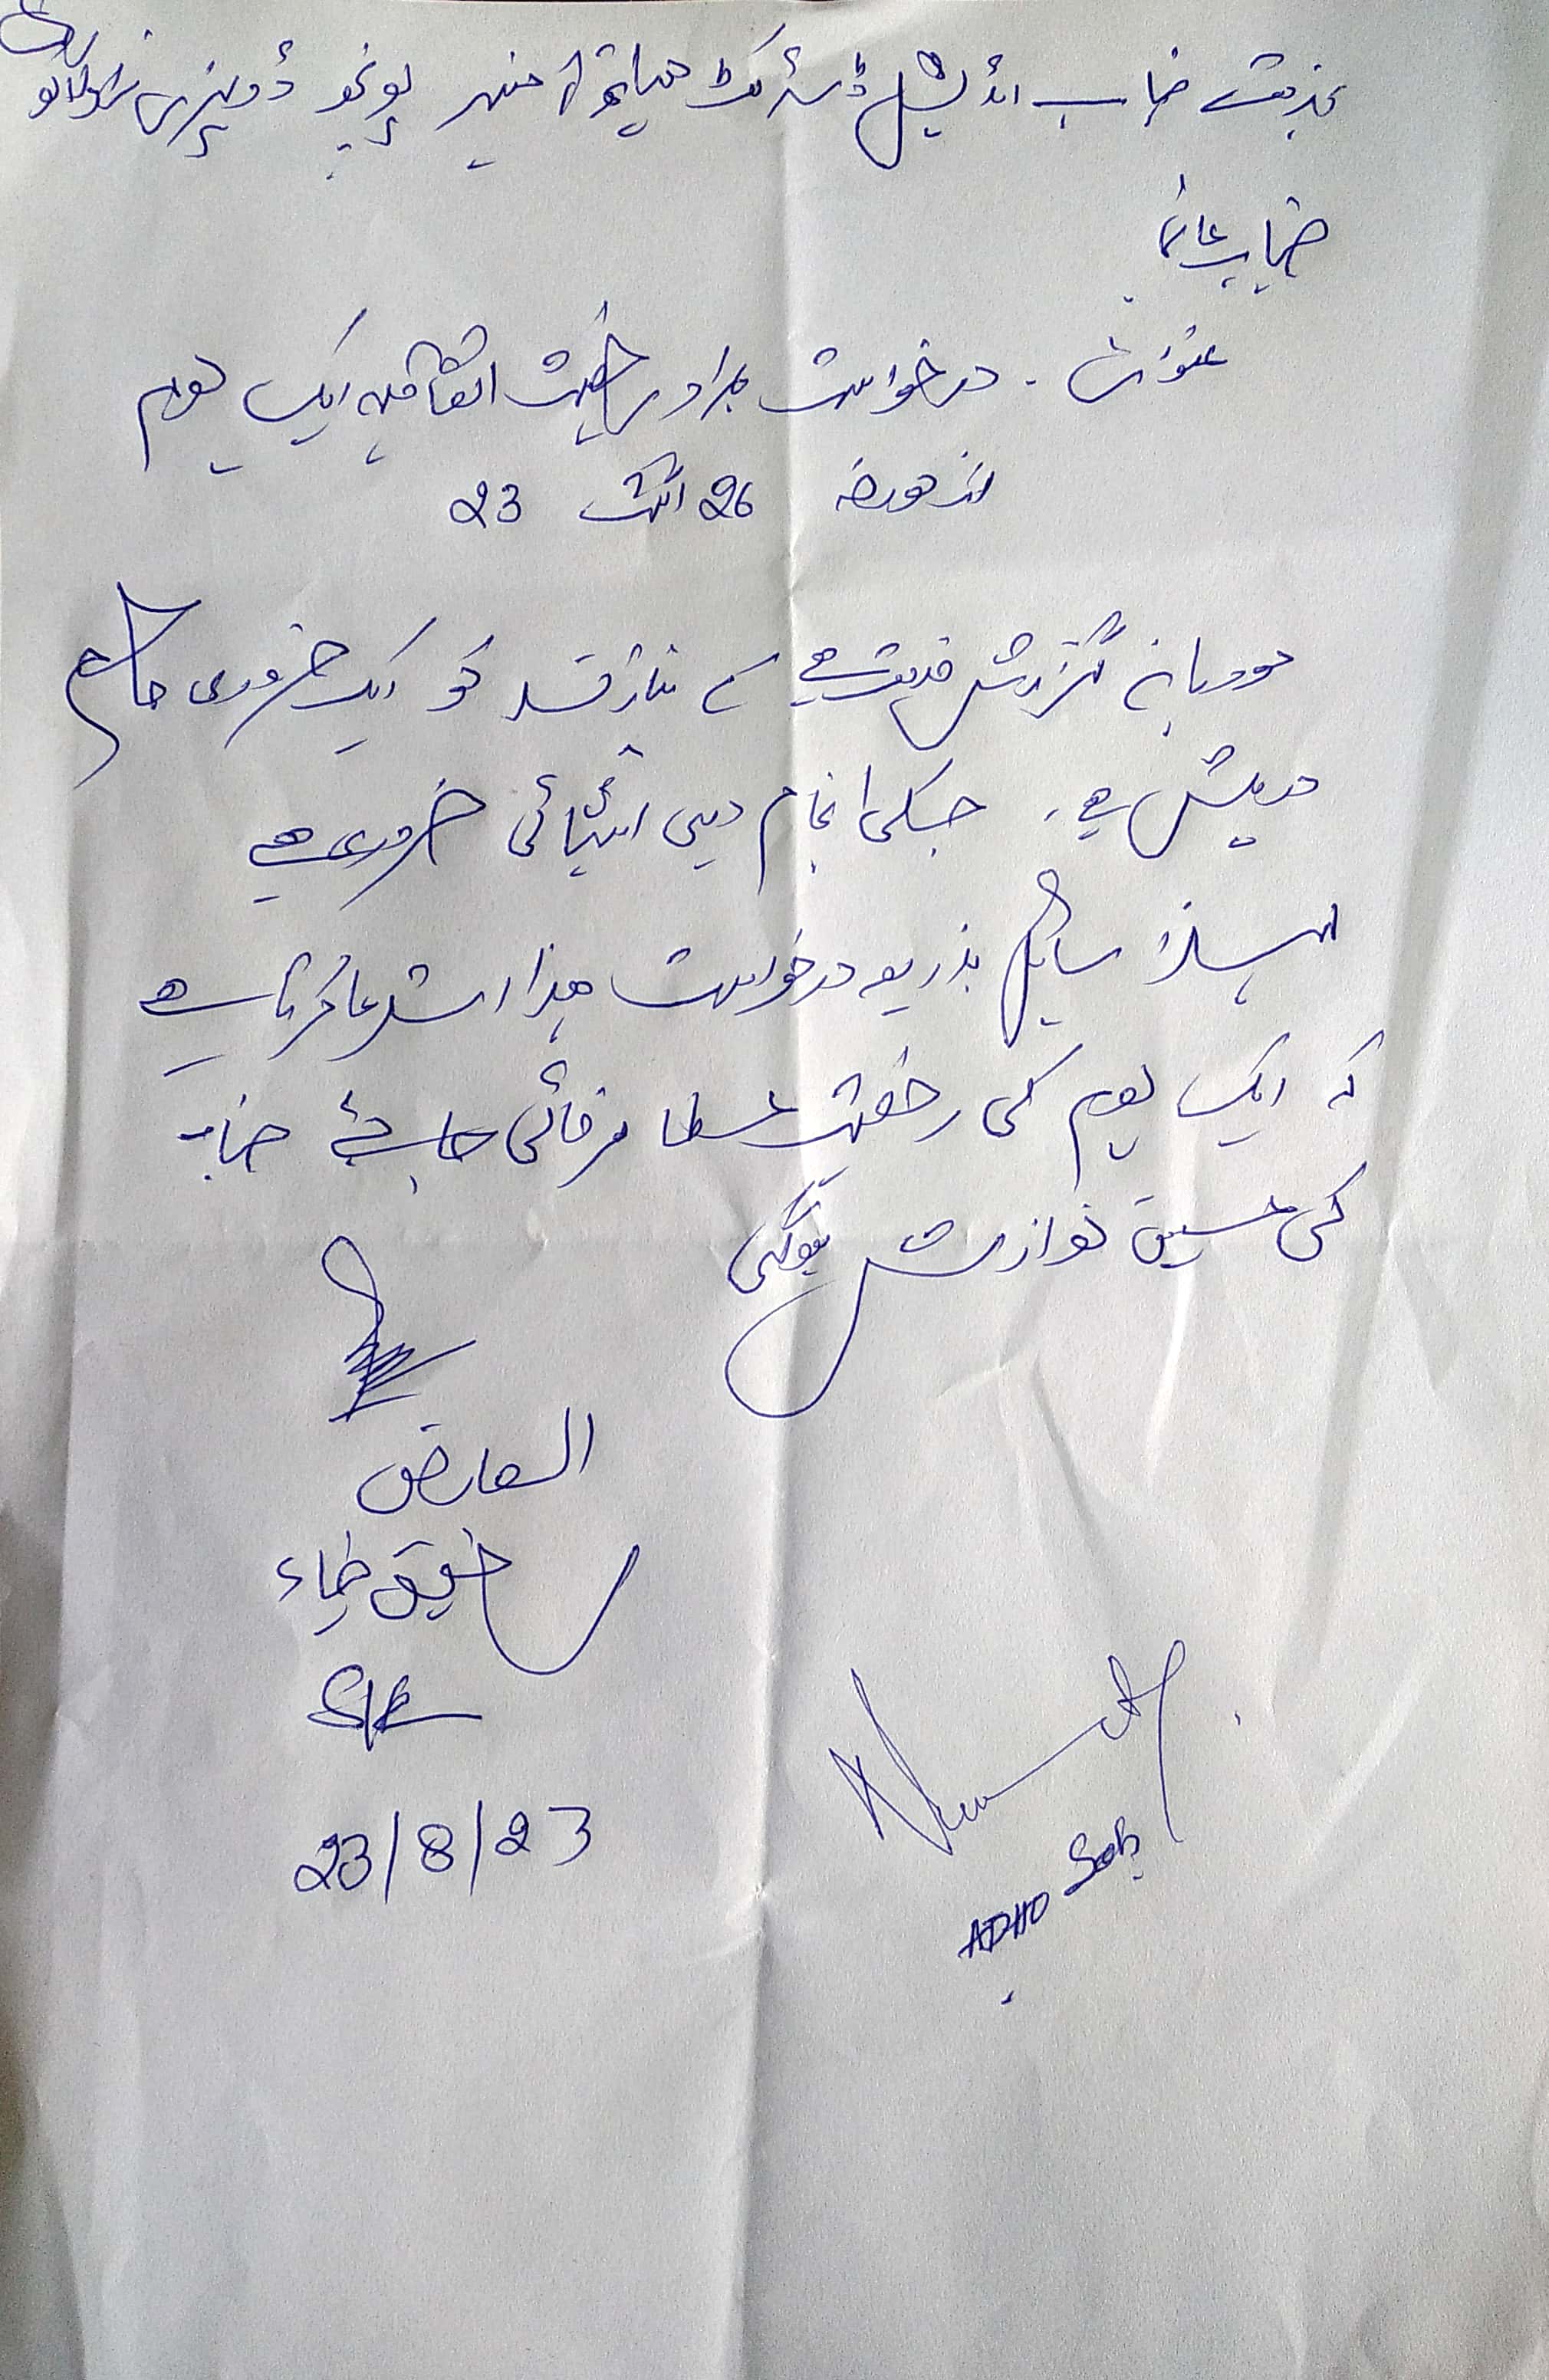 بخدمت جناب ایڈیشنل ڈسٹرکٹ ہیلتھ آفیسر پونچھ ڈویژن راولاکوٹ
جناب عالی
عنوان - درخواست برائے رخصت اتفاقیہ ایک یوم
از مورخہ 26 اگست 23
مودبانہ گزارش خدمت ہے کے کو ایک ضروری کام
درپیش ہے، جسکی انجام دہی انتہائی ضروری ہے
لہذا سائل بذریعہ درخواست ہذا استدعا کرتا ہے
کہ ایک یوم کی رخصت عطا فرمائی جائے جناب
کی عین نوازش ہوگی
العارض
ضیاء
SK
23/8/23
ADHO Sab